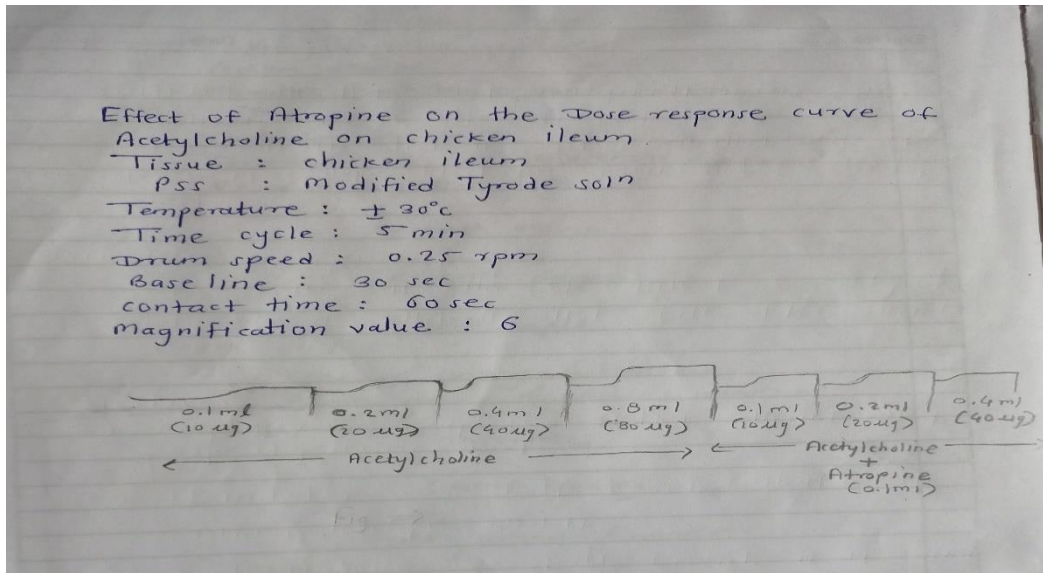 Effect of Atropine on the Dose response curve of
Acetylcholine on chicken ileum
Tissue : chicken ileum
PSS : Modified Tyrode soln
Temperature : ± 30°c
Time cycle : 5 min
Drum speed : 0.25 rpm
Base line : 30 sec
contact time : 60 sec
Magnification value : 6
0.1 ml 0.2 ml 0.4 ml 0.8 ml 0.1 ml 0.2 ml 0.4 ml
(10 ug) (20 ug) (40 ug) (80 ug) (10 ug) (20 ug) (40 ug)
Acetylcholine Acetylcholine
+
Atropine
(0.1ml)
Fig